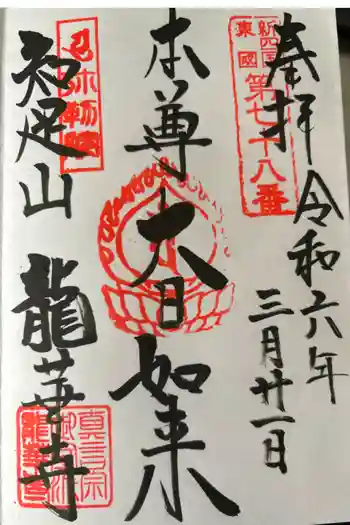 奉拝
令和六年
三月廿一日
新四国
東国
第七十八番
本尊
大日如来
知足山
龍華寺
真言宗
御室派
龍華寺